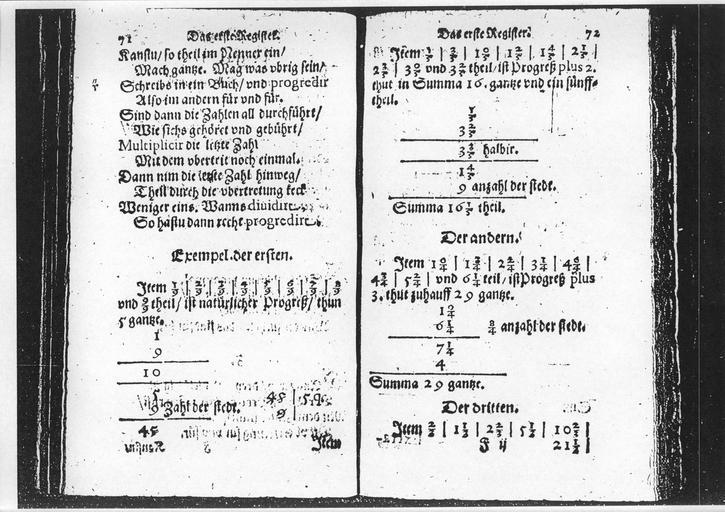 71 Das erste Register.
Kanstu/ so theil im Nenner ein/
Mach gantze. Mag was vbrig sein/
Schreibs in ein Bruch/ vnd progredir
Also im andern für vnd für.
Sind dann die Zahlen all durchführt/
Wie sichs gehöret vnd gebührt/
Multiplicir die letzte Zahl
Mit dem vbertrit noch einmal.
Dann nim die letzte Zahl hinweg/
Theil durch die vbertretung keck
Weniger eins. Wanns diuidirt
So hastu dann recht progredirt.
Exempel der ersten.
Item 1/9 | 2/9 | 3/9 | 4/9 | 5/9 | 6/9 | 7/9 | 8/9
vnd 9/9 theil/ ist natürlicher Progreß/ thun
5 gantze.
1
9
10
5
9 Zahl der stedt.
45
45 | 5.
9 |
Item
Das erste Register. 72
Item 1/5 | 3/5 | 1 0/5 | 1 2/5 | 1 4/5 | 2 1/5 |
2 3/5 | 3 0/5 vnd 3 2/5 theil/ ist Progreß plus 2.
thut in Summa 16. gantze vnd ein fünff-
theil.
1/5
3 2/5
3 3/5 halbir.
1 4/5
9 anzahl der stedt.
Summa 16 1/5 theil.
Der andern.
Item 1 0/4 | 1 3/4 | 2 2/4 | 3 1/4 | 4 0/4 |
4 3/4 | 5 2/4 | vnd 6 1/4 teil/ ist Progreß plus
3. thut zuhauff 29 gantze.
1 0/4
6 1/4 8/4 anzahl der stedt.
7 1/4
4
Summa 29 gantze.
Der dritten.
Item 2/2 | 1 1/2 | 2 | 5 1/2 | 10 |
F ij 21 1/2 |